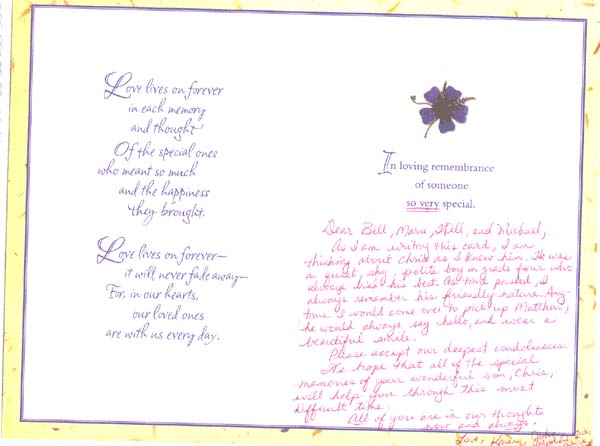 Love lives on forever
in each memory
and thought
Of the special ones
who meant so much
and the happiness
they brought.
Love lives on forever—
it will never fade away—
For, in our hearts,
our loved ones
are with us every day.
In loving remembrance
of someone
so very special.
Dear Bill, Marie, and Michael,
As I am writing this card, I am
thinking about Chris as I knew him. He was
a quiet, shy, polite boy in grade four who
always tries his best. As time passed, I
always remember his friendly nature. Any-
time I would come over to pick up Matthew,
he would always say hello, and wear a
beautiful smile.
Please accept our deepest condolences.
I hope that all of the special
memories of your wonderful son, Chris,
will help you through this most
difficult time.
All of you are in our thoughts
now and always.
Love, Karen,